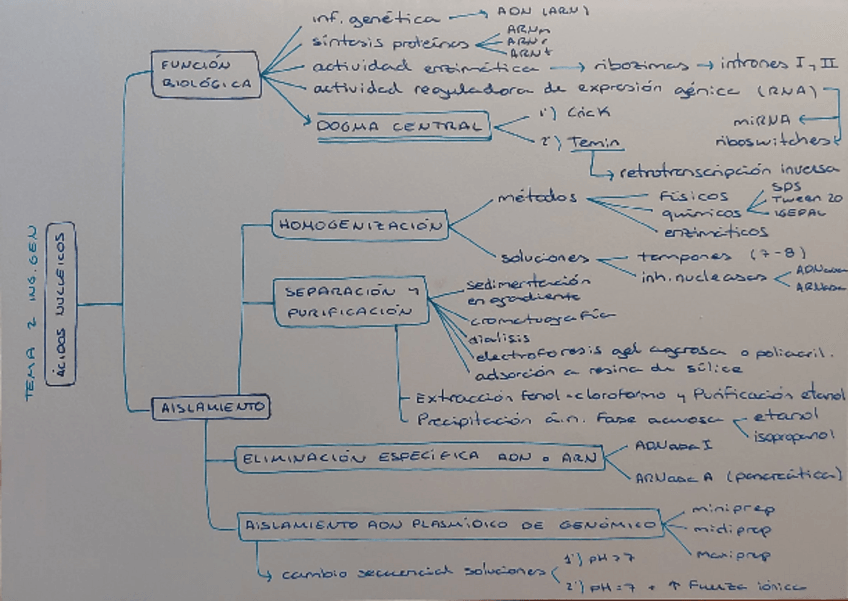 TEMA 2 ING.GEN
ÁCIDOS NUCLEICOS
FUNCIÓN
BIOLÓGICA
inf. genética → ADN (ARN)
síntesis proteínas
ARNm
ARNr
ARNt
actividad enzimática → ribozimas → intrones I, II
actividad reguladora de expresión génica (RNA)
miRNA
riboswitches
DOGMA CENTRAL
1º) Crick
2º) Temin
retrotranscripción inversa
AISLAMIENTO
HOMOGENIZACIÓN
métodos
físicos
químicos
SDS
Tween 20
IGEPAL
enzimáticos
soluciones
tampones (7-8)
inh. nucleasas
ADNasa
ARNasa
SEPARACIÓN Y
PURIFICACIÓN
sedimentación
en gradiente
cromatografía
dialisis
electroforesis gel agarosa o poliacril.
adsorción a resina de sílice
Extracción Fenol-cloroformo y Purificación etanol
Precipitación á.n. Fase acuosa
etanol
isopropanol
ELIMINACIÓN ESPECÍFICA ADN o ARN
ADNasa I
ARNasa A (pancreática)
AISLAMIENTO ADN PLASMÍDICO DE GENÓMICO
miniprep
midiprep
Maxiprep
cambio secuencial soluciones
1º) pH>7
2º) pH=7 + ↑ Fuerza iónica